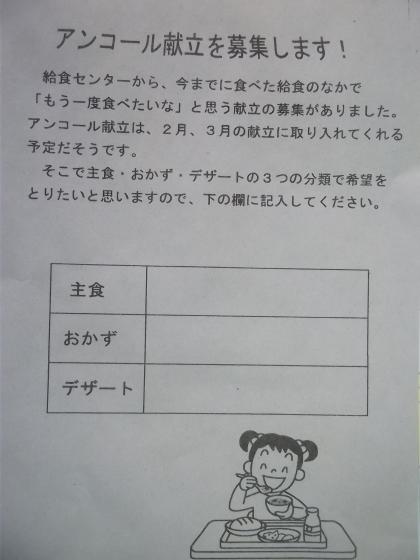 アンコール献立を募集します！
給食センターから、今までに食べた給食のなかで
「もう一度食べたいな」と思う献立の募集がありました。
アンコール献立は、２月、３月の献立に取り入れてくれる
予定だそうです。
そこで主食・おかず・デザートの３つの分類で希望を
とりたいと思いますので、下の欄に記入してください。
主食
おかず
デザート